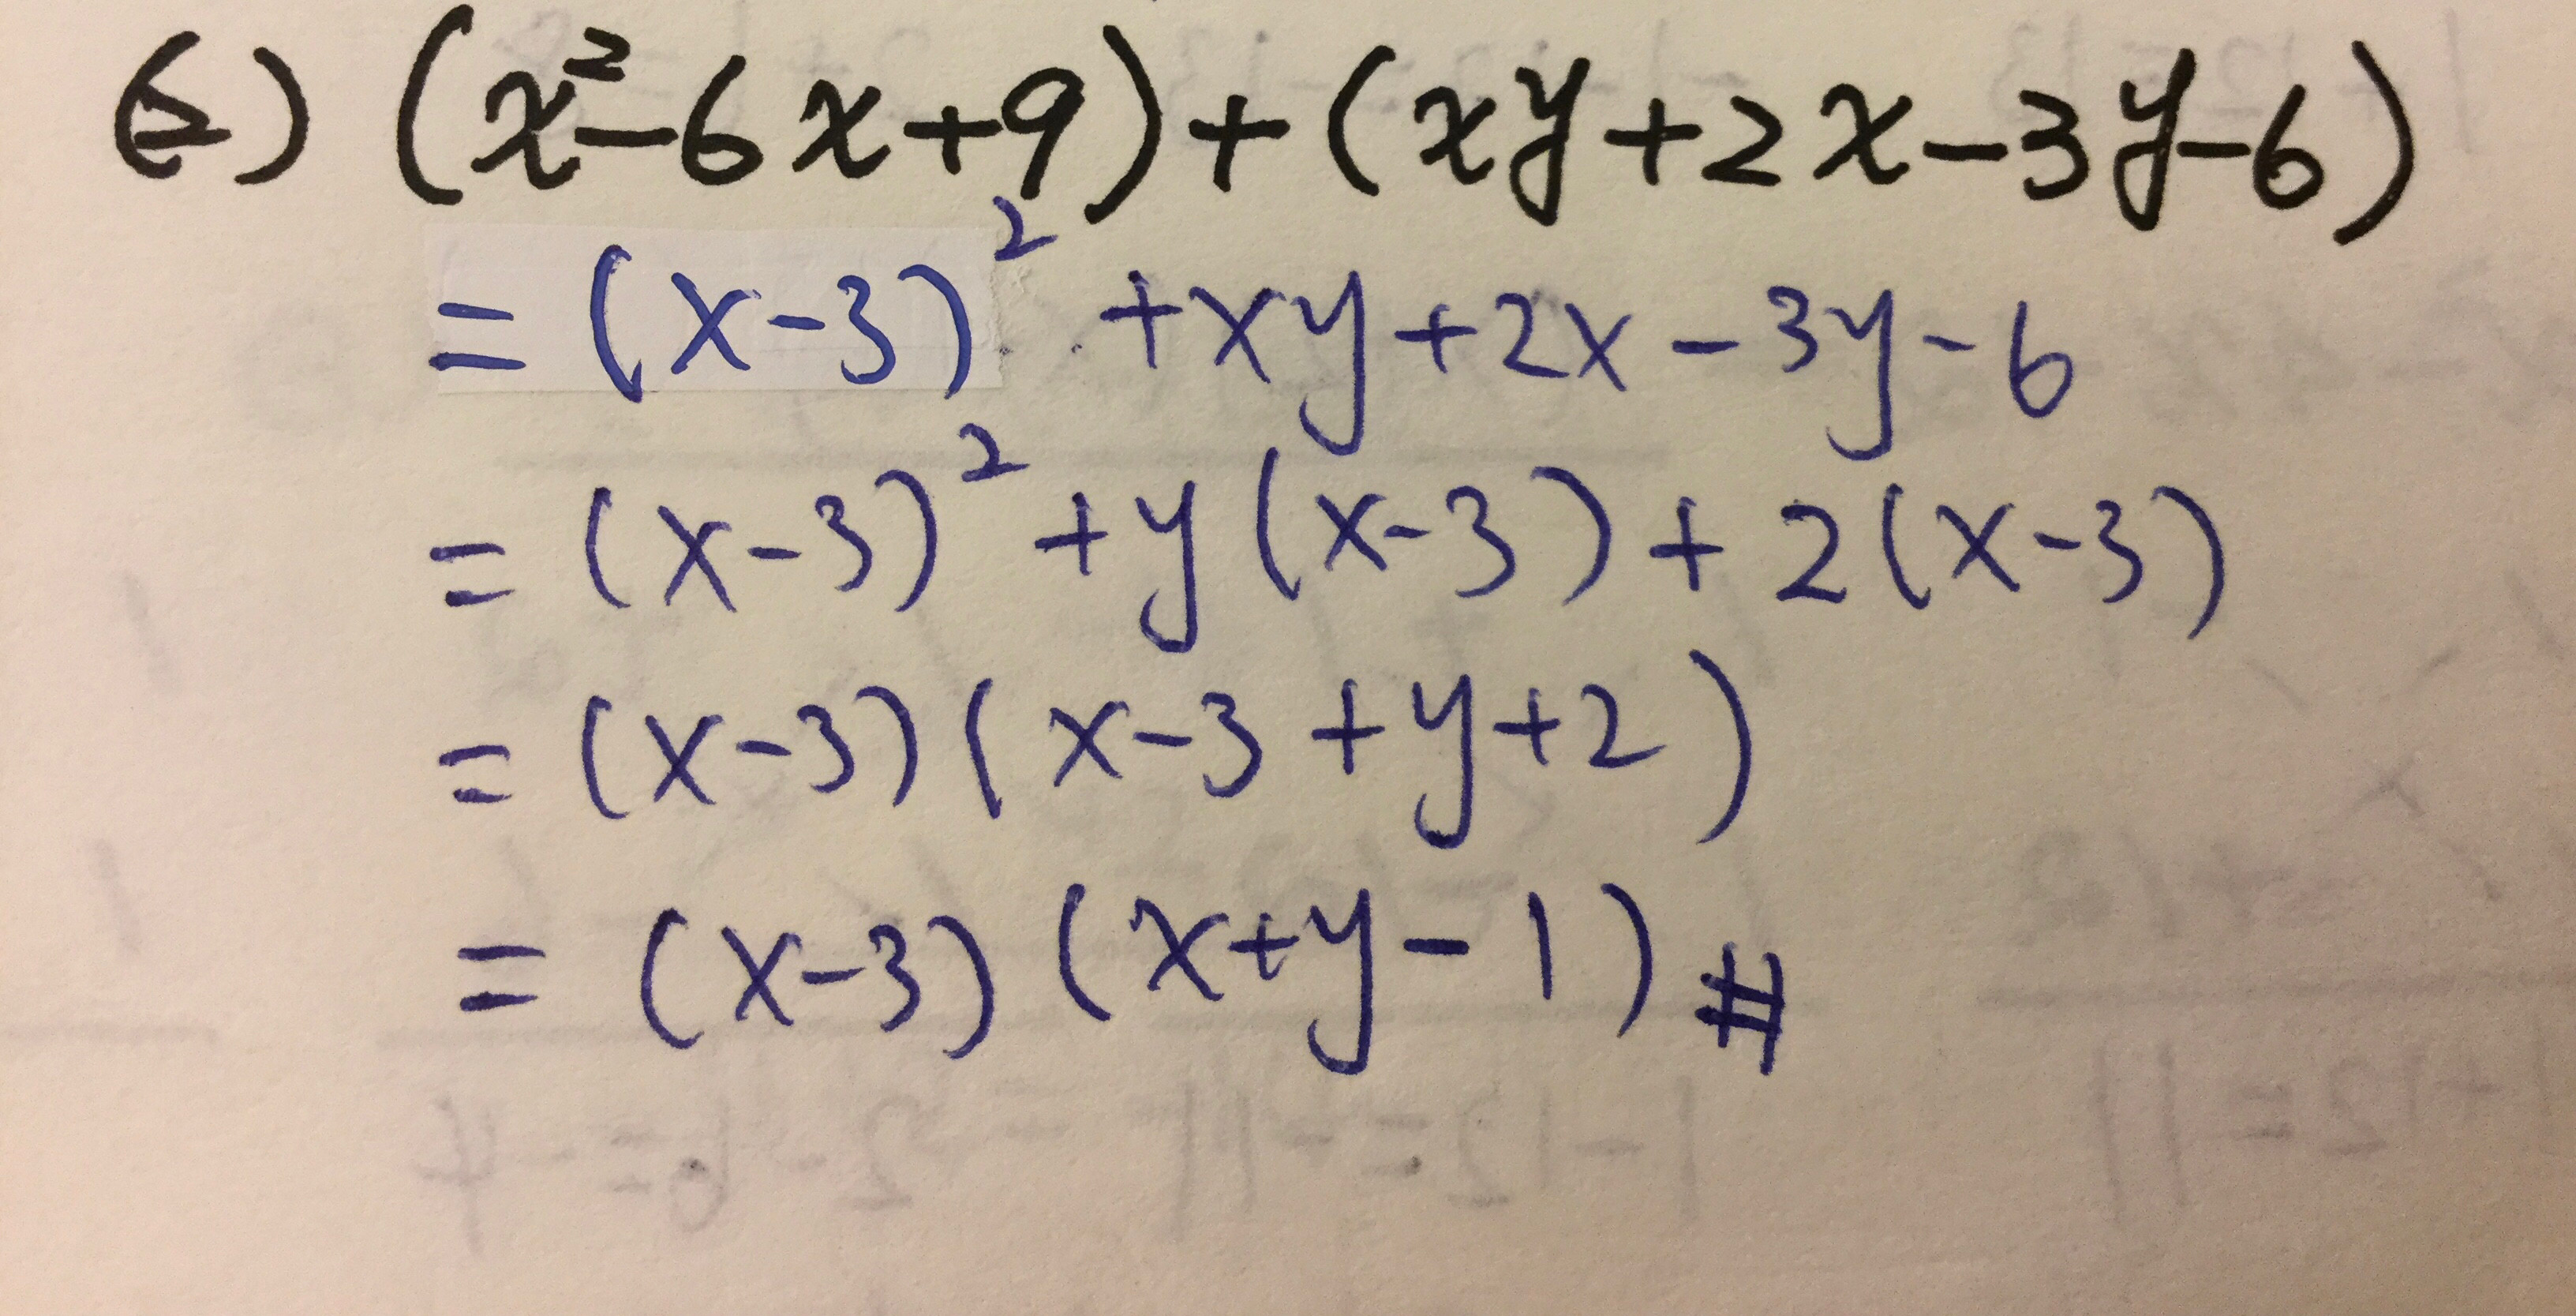 (2) (x²-6x+9)+(xy+2x-3y-6)
= (x-3)² +xy+2x-3y-6
= (x-3)² +y(x-3)+2(x-3)
= (x-3)(x-3+y+2)
= (x-3)(x+y-1)#